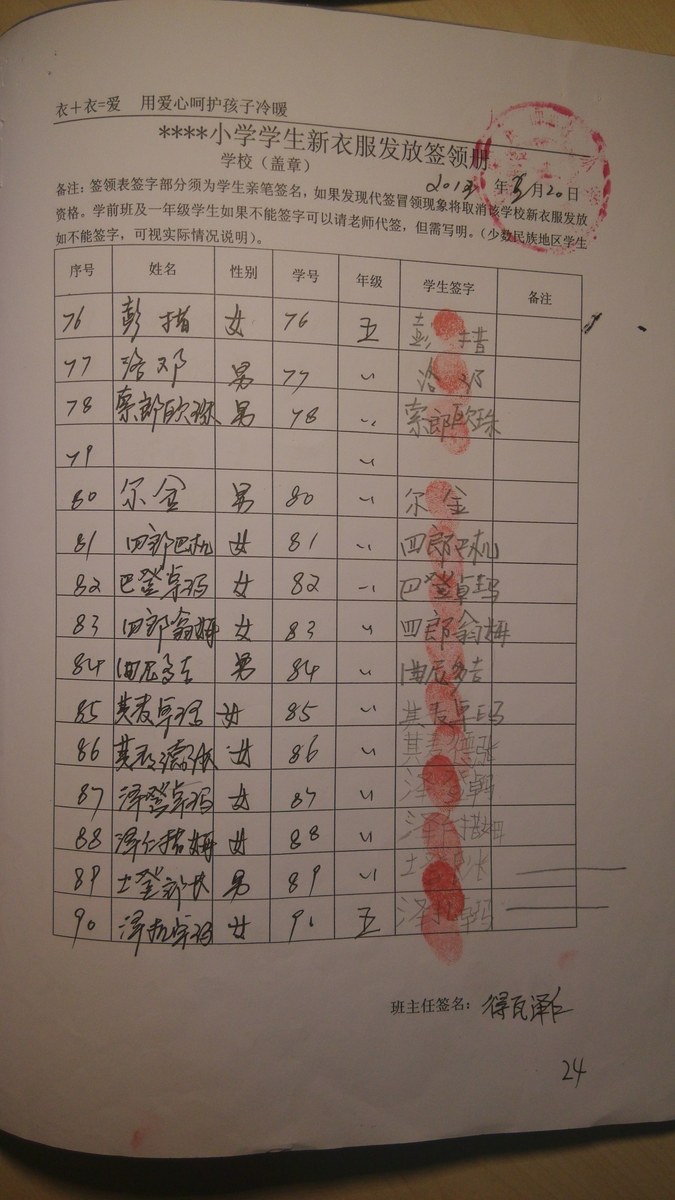 衣+衣=爱 用爱心呵护孩子冷暖
****小学学生新衣服发放签领册
学校（盖章） 2013年5月20日
备注：签领表签字部分须为学生亲笔签名，如果发现代签冒领现象将取消该学校新衣服发放
资格。学前班及一年级学生如果不能签字可以请老师代签，但需写明。（少数民族地区学生
如不能签字，可视实际情况说明）。
序号 姓名 性别 学号 年级 学生签字 备注
76 彭措 女 76 五 彭措
77 洛邓 男 77 〃 洛邓
78 索郎欧珠 男 78 〃 索郎欧珠
79 〃
80 尔金 男 80 〃 尔金
81 四郎巴机 女 81 〃 四郎巴机
82 巴登卓玛 女 82 〃 巴登卓玛
83 四郎翁姆 女 83 〃 四郎翁姆
84 曲尼多吉 男 84 〃 曲尼多吉
85 其麦卓玛 女 85 〃 其麦卓玛
86 其麦德 女 86 〃 其麦德
87 泽登卓玛 女 87 〃 泽登卓玛
88 泽仁措姆 女 88 〃 泽仁措姆
89 土登郎 男 89 〃 土登
90 泽机卓玛 女 90 五 泽机卓玛
班主任签名：得瓦泽仁
24